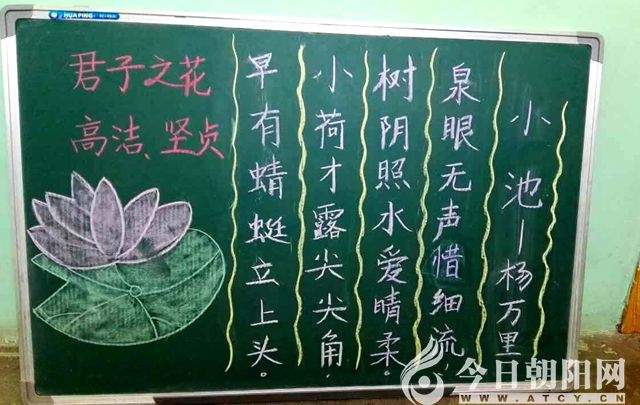 HUAPING
小池—杨万里
泉眼无声惜细流,
树阴照水爱晴柔。
小荷才露尖尖角,
早有蜻蜓立上头。
君子之花
高洁、坚贞
今日朝阳网
WWW.ATCY.CN